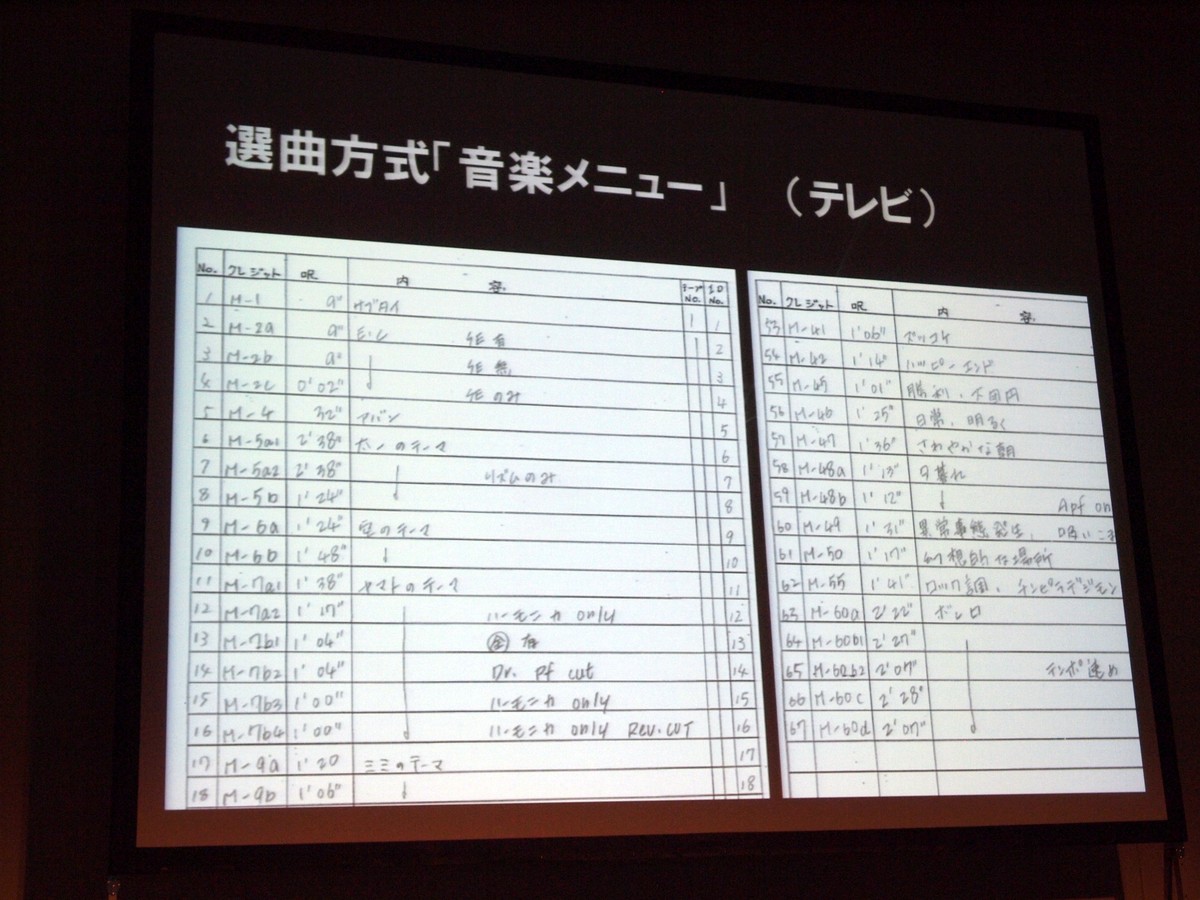 選曲方式「音楽メニュー」 （テレビ）
No. クレジット 呎 内 容 テープNo. I D No.
1 M-1 a" サブタイ 1 1
2 M-2a a" E.C SE 有 2
3 M-2b a" ↓ SE 無 3
4 M-2c 0'02" SE のみ 4
5 M-4 32" アバン 5
6 M-5a1 2'38" 太一のテーマ 6
7 M-5a2 2'38" ↓ リズムのみ 7
8 M-5b 1'24" 8
9 M-6a 1'24" 空のテーマ 9
10 M-6b 1'48" ↓ 10
11 M-7a1 1'38" ヤマトのテーマ 11
12 M-7a2 1'17" ハーモニカ only 12
13 M-7b1 1'04" 有 13
14 M-7b2 1'04" Dr. Pf cut 14
15 M-7b3 1'00" ハーモニカ only 15
16 M-7b4 1'00" ↓ ハーモニカ only Rev. CUT 16
17 M-9a 1'20 ミミのテーマ 17
18 M-9b 1'06" ↓ 18
No. クレジット 呎 内 容
53 M-41 1'06" ズッコケ
54 M-42 1'14" ハッピーエンド
55 M-45 1'01" 勝利、大団円
56 M-46 1'25" 日常、明るく
57 M-47 1'36" さわやかな朝
58 M-48a 1'13" 夕暮れ
59 M-48b 1'12" ↓ Apf on
60 M-49 1'31" 異常事態発生、
61 M-50 1'17" 幻想的な場所
62 M-55 1'41" ロック調、チンピラデジモン
63 M-60a 2'22" ボレロ
64 M-60b1 2'27"
65 M-60b2 2'07" テンポ速め
66 M-60c 2'28"
67 M-60d 2'07" ↓